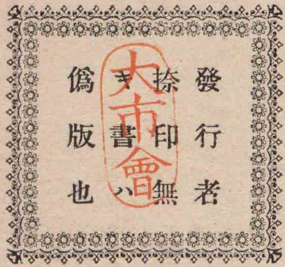 發行者
捺印無
キ書ハ
僞版也
大市會